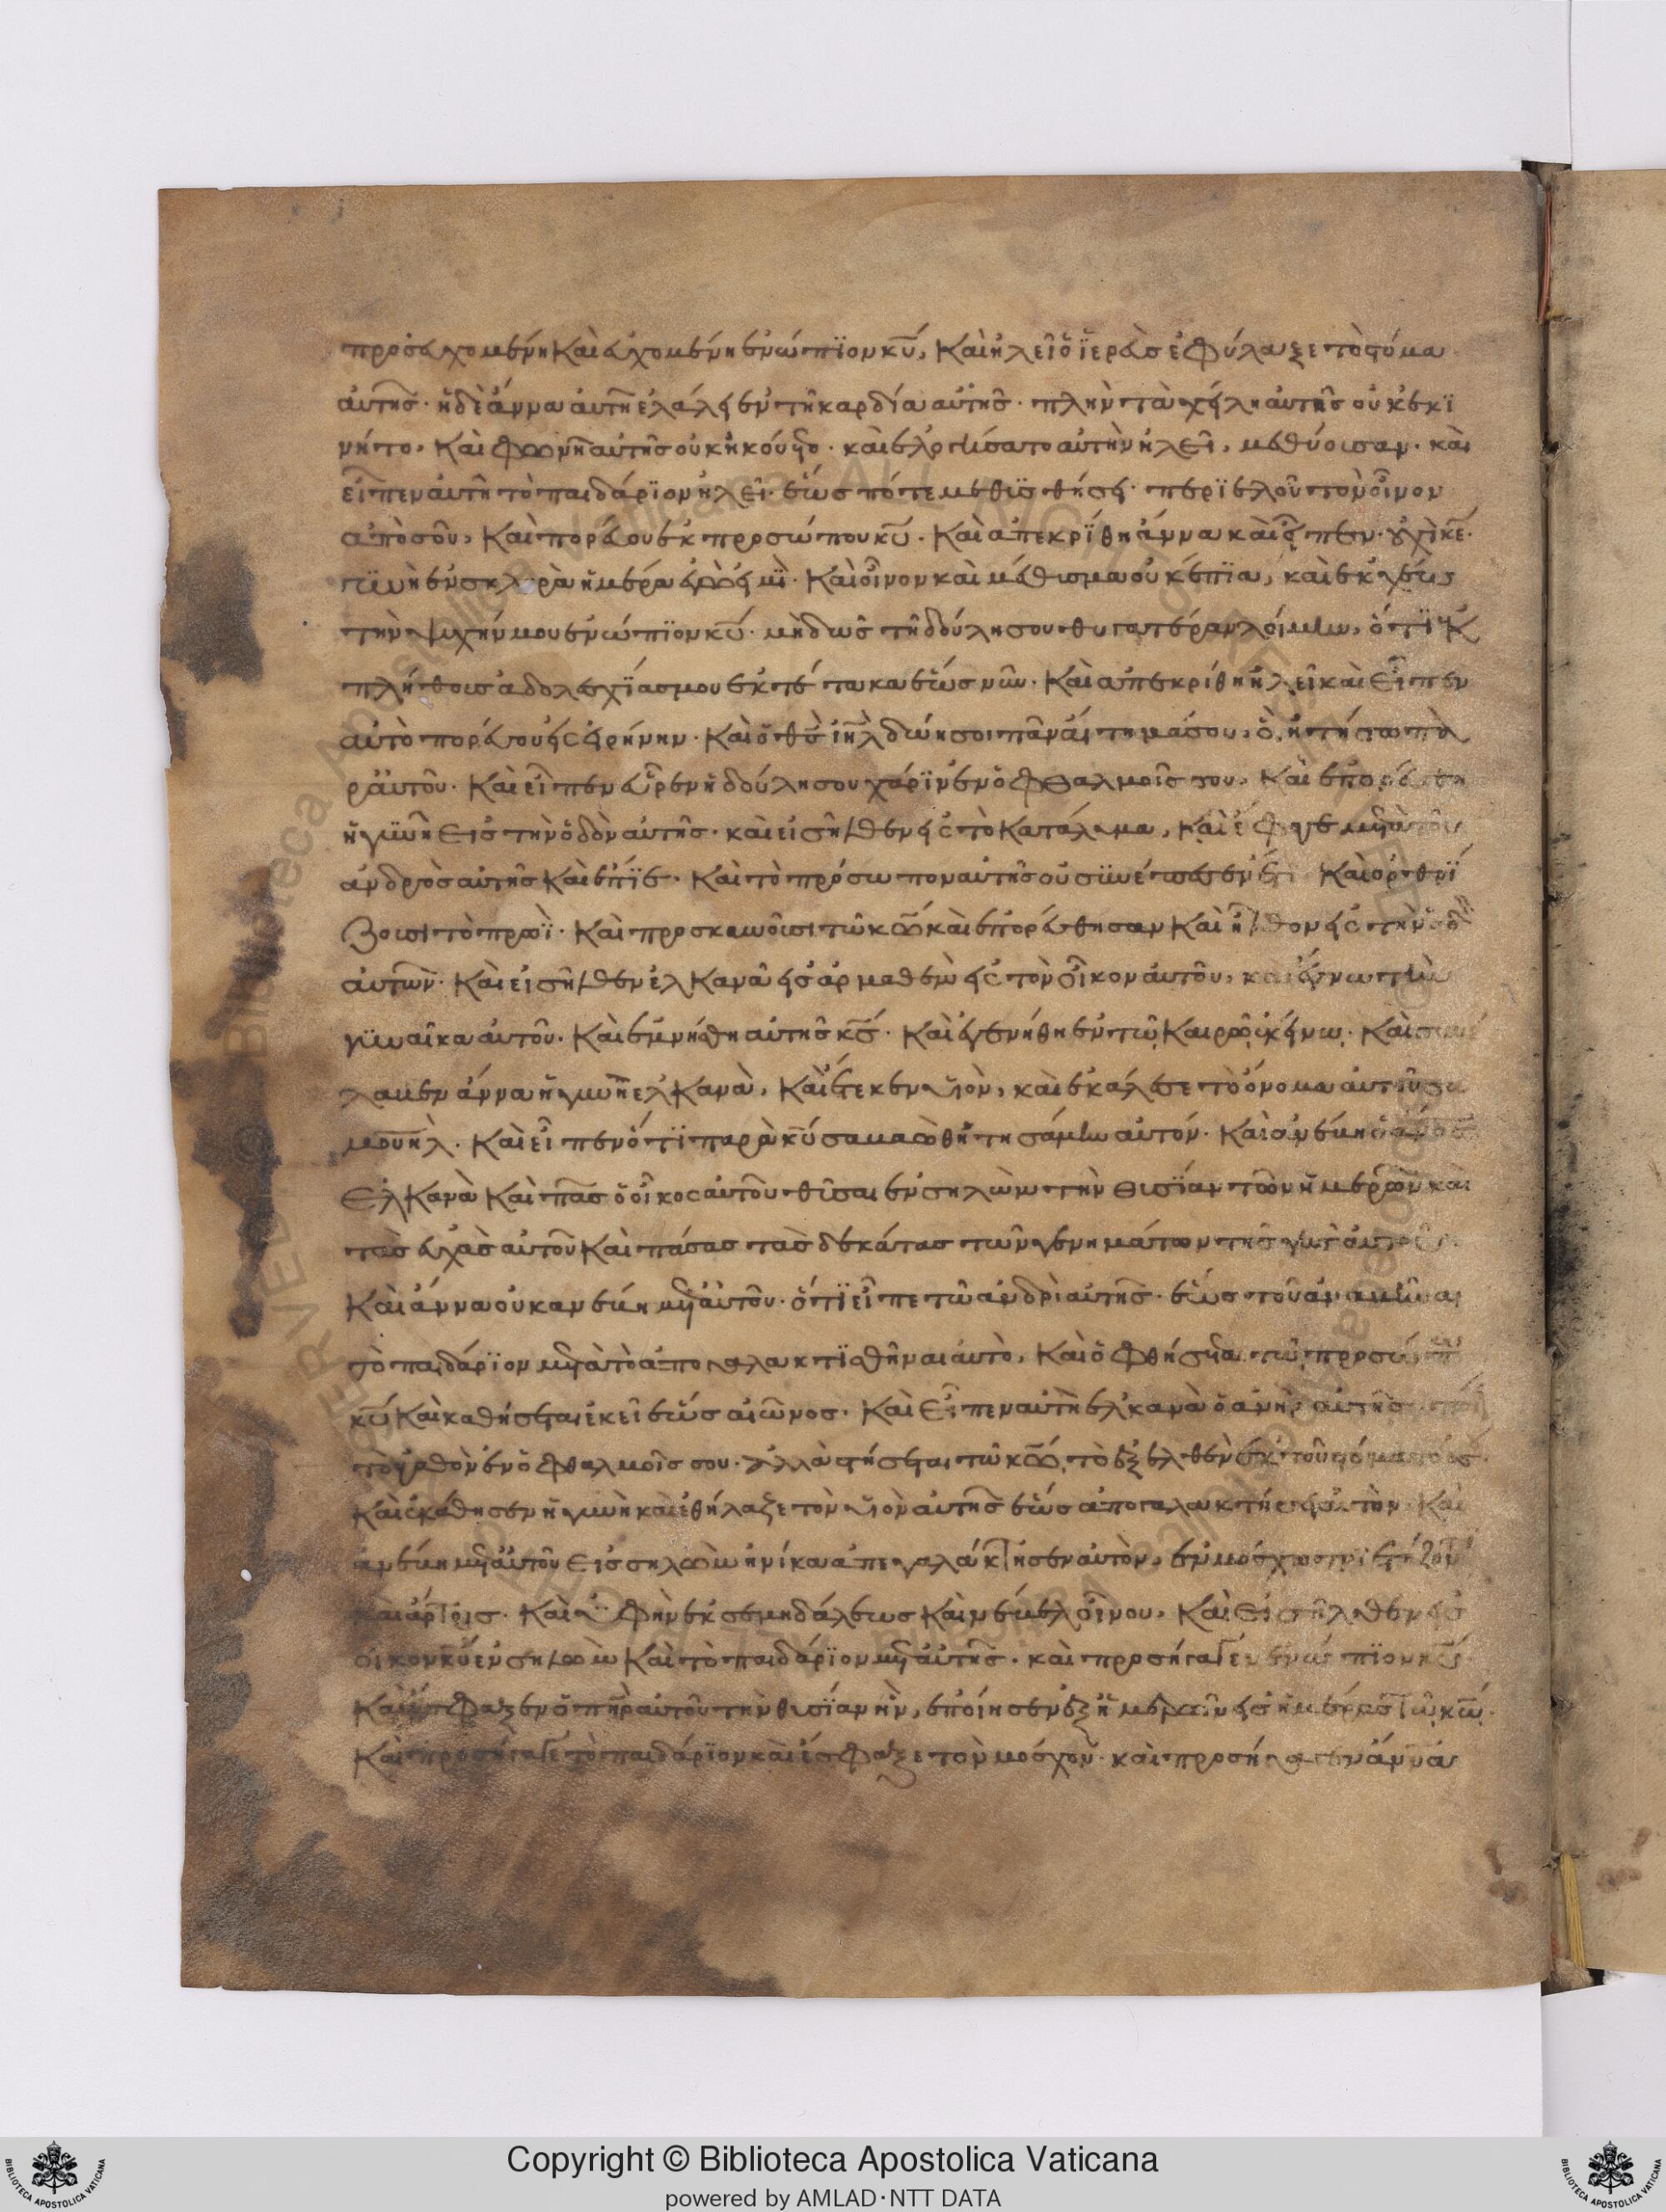 προσευχομένη καὶ εὐχομένη ἐνώπϊον κῡ, καὶ ἠλεῖ ὁ ἱερεὺς ἐφύλαξε τὸ στόμα
αὐτῆς· ἡ δὲ ἄννα αὐτὴ ἐλάλει ἐν τῆ καρδία αὐτῆς· πλὴν τὰ χείλη αὐτῆς οὐκ ἐκϊ
νήτο, καὶ φωνὴ αὐτῆς οὐκ ἠκούετο· καὶ ἐλογίσατο αὐτὴν ἠλεῖ, μεθύουσαν· καὶ
εἶπεν αὐτῆ τὸ παιδάρϊον ἠλεῖ· ἕως πότε μεθϋσθήσει· περϊελοῦ τὸν οἶνον
ἀπὸ σοῦ, καὶ πορεύου ἐκ προσώπου κῡ· καὶ ἀπεκρίθη ἄννα καὶ εἶπεν· οὐχὶ κε̄·
γϋνὴ ἐν σκληρὰ ἡμέρα ἐγώ εἰμϊ· καὶ οἶνον καὶ μέθυσμα οὐκ ἔπϊα, καὶ ἐκχέω
τὴν ψυχήν μου ἐνώπϊον κῡ· μὴ δῶς τὴ δούλη σου θυγατέραν λοίμην, ὅτϊ ἐκ
πλήθους ἀδολεσχΐας μου ἐκτέτακα ἕως νῦν· καὶ ἀπεκρίθη ἠλεῖ καὶ εἶπεν
αὐτὸ πορεύου εἰς εἰρήνην· καὶ ὁ θς̄ ιη̄λ δώη σοι πᾶν αἴτημά σου, ὃ ἠτήσω πα
ρ' αὐτοῦ· καὶ εἶπεν εὗρεν ἡ δούλη σου χάρϊν ἐν ὀφθαλμοῖς σου, καὶ ἐπορεύθη
ἡ γϋνὴ εἰς τὴν ὁδὸν αὐτῆς· καὶ εἰσῆλθεν εἰς τὸ κατάλυμα, καὶ ἔφαγε μετὰ τοῦ
ἀνδρὸς αὐτῆς καὶ ἔπϊε· καὶ τὸ πρόσωπον αὐτῆς οὐ σϋνέπεσεν ἔτι καὶ ὀρθρΐ
ζουσι τὸ πρωΐ· καὶ προσκυνοῦσι τῶ κω̄ καὶ ἐπορεύθησαν καὶ ἦλθον εἰς τὴν ὁδὸν
αὐτῶν· καὶ εἰσῆλθεν ἐλκανᾶ εἰς ἀρμαθὲμ εἰς τὸν οἶκον αὐτοῦ, καὶ ἔγνω τὴν
γϋναῖκα αὐτοῦ· καὶ ἐμνήσθη αὐτῆς κς̄· καὶ ἐγενήθη ἐν τῶ καιρῶ ἐκείνω· καὶ συνέ
λαβεν ἄννα ἡ γυνὴ ἐλκανὰ, καὶ ἔτεκεν υἱὸν, καὶ ἐκάλεσε τὸ ὄνομα αὐτοῦ σα
μουὴλ· καὶ εἶπεν ὅτϊ παρὰ κῡ σαβαὼθ ἠτησάμην αὐτόν· καὶ ἀνέβη ὁ ἄνος̄
ἐλκανὰ καὶ πᾶς ὁ οἶκος αὐτοῦ θῦσαι ἐν σηλὼμ τὴν θυσΐαν τῶν ἡμερῶν καὶ
τὰς εὐχὰς αὐτοῦ καὶ πάσας τὰς δεκάτας τῶν γενημάτων τῆς γῆς αὐτοῦ
καὶ ἄννα οὐκ ἀνέβη μετ' αὐτοῦ· ὅτϊ εἶπε τῶ ἀνδρὶ αὐτῆς· ἕως τοῦ ἀναβῆναι
τὸ παιδάρϊον μετὰ τὸ ἀπογαλακτϊσθῆναι αὐτὸ, καὶ ὀφθήσεται τῶ προσώπω
κῡ καὶ καθήσεται ἐκεῖ ἕως αἰῶνος· καὶ εἶπεν αὐτῆ ἐλκανὰ ὁ ἀνὴρ αὐτῆς· ποίει
τὸ ἀγαθὸν ἐν ὀφθαλμοῖς σου· ἀλλὰ στήσεται τῶ κω̄, τὸ ἐξελθὲν ἐκ τοῦ στόματός
καὶ ἐκάθησεν ἡ γυνὴ καὶ ἐθήλαξε τὸν υἱὸν αὐτῆς ἕως ἀπογαλακτήσει αὐτὸν καὶ
ἀνέβη μετ' αὐτοῦ εἰς σηλὼμ ἡνίκα ἀπεγαλάκτησεν αὐτὸν, ἐν μόσχω τρϊετίζοντι
καὶ ἄρτοις· καὶ οἰφὴν ἐκ σεμηδάλεως καὶ νέβελ οἴνου, καὶ εἰσῆλθεν εἰς
οἶκον κῡ ἐν σηλὼμ καὶ τὸ παιδάρϊον μετ' αὐτῆς· καὶ προσήγαγεν ἐνώπϊον κῡ
καὶ ἔσφαξεν ὁ πηρ̄ αὐτοῦ τὴν θυσΐαν ἣν, ἐποίησεν ἐξ ἡμερῶν εἰς ἡμέρας τῶ κω̄·
καὶ προσήγαγε τὸ παιδάρϊον καὶ ἔσφαξε τὸν μόσχον· καὶ προσήγαγεν ἄννα